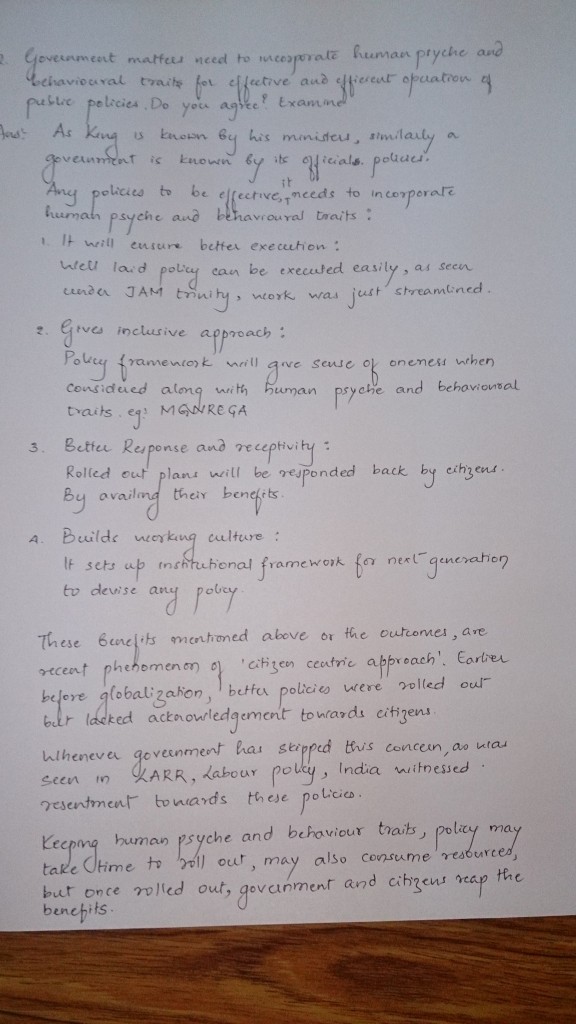 2. Government matters need to incorporate human psyche and
behavioural traits for effective and efficient operation of
public policies. Do you agree? Examine
Ans:- As King is known by his ministers, similarly a
government is known by its officials policies.
Any policies to be effective, it needs to incorporate
human psyche and behavioural traits :
1. It will ensure better execution :
Well laid policy can be executed easily, as seen
under JAM trinity, work was just streamlined.
2. Gives inclusive approach :
Policy framework will give sense of oneness when
considered along with human psyche and behavioural
traits. eg: MGNREGA
3. Better Response and receptivity :
Rolled out plans will be responded back by citizens.
By availing their benefits.
4. Builds working culture :
It sets up institutional framework for next generation
to devise any policy.
These benefits mentioned above or the outcomes, are
recent phenomenon of 'citizen centric approach'. Earlier
before globalization, better policies were rolled out
but lacked acknowledgement towards citizens.
Whenever government has skipped this concern, as was
seen in LARR, Labour policy, India witnessed
resentment towards these policies.
Keeping human psyche and behaviour traits, policy may
take time to roll out, may also consume resources,
but once rolled out, government and citizens reap the
benefits.